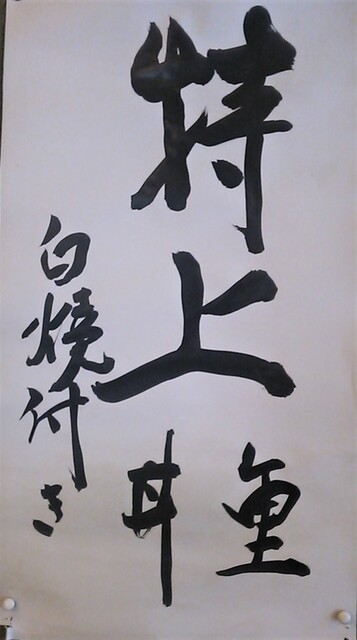 特上
重
丼
白焼付き